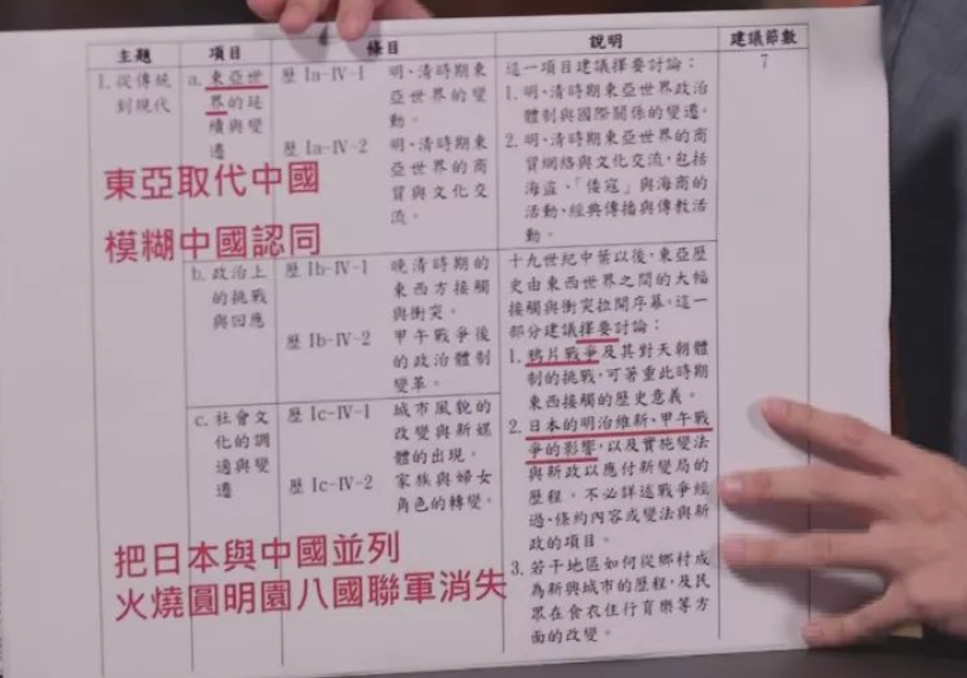 主題 項目 條目 說明 建議節數
1. 從傳統
到現代
a. 東亞世
界的延
續與變
遷
歷 Ia-IV-1 明、清時期東
亞世界的變
動。
歷 Ia-IV-2 明、清時期東
亞世界的商
貿與文化交
流。
這一項目建議擇要討論:
1. 明、清時期東亞世界政治
體制與國際關係的變遷。
2. 明、清時期東亞世界的商
貿網絡與文化交流,包括
海盜、「倭寇」與海商的
活動、經典傳播與傳教活
動。
7
東亞取代中國
模糊中國認同
b. 政治上
的挑戰
與回應
歷 Ib-IV-1 晚清時期的
東西方接觸
與衝突。
歷 Ib-IV-2 甲午戰爭後
的政治體制
變革。
c. 社會文
化的調
適與變
遷
歷 Ic-IV-1 城市風貌的
改變與新媒
體的出現。
歷 Ic-IV-2 家族與婦女
角色的轉變。
十九世紀中葉以後,東亞歷
史由東西世界之間的大幅
接觸與衝突拉開序幕。這一
部分建議擇要討論:
1. 鴉片戰爭及其對天朝體
制的挑戰,可著重此時期
東西接觸的歷史意義。
2. 日本的明治維新、甲午戰
爭的影響,以及實施變法
與新政以應付新變局的
歷程。不必詳述戰爭經
過、條約內容或變法與新
政的項目。
3. 若干地區如何從鄉村成
為新興城市的歷程,及民
眾在食衣住行育樂等方
面的改變。
把日本與中國並列
火燒圓明園八國聯軍消失